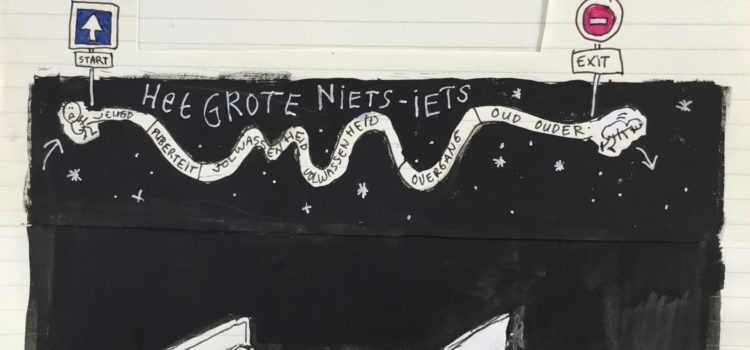 START
EXIT
Het GROTE NIETS-IETS
JEUGD
PUBERTEIT
VOLWASSENHEID
VOLWASSENHEID
OVERGANG
OUD OUDER